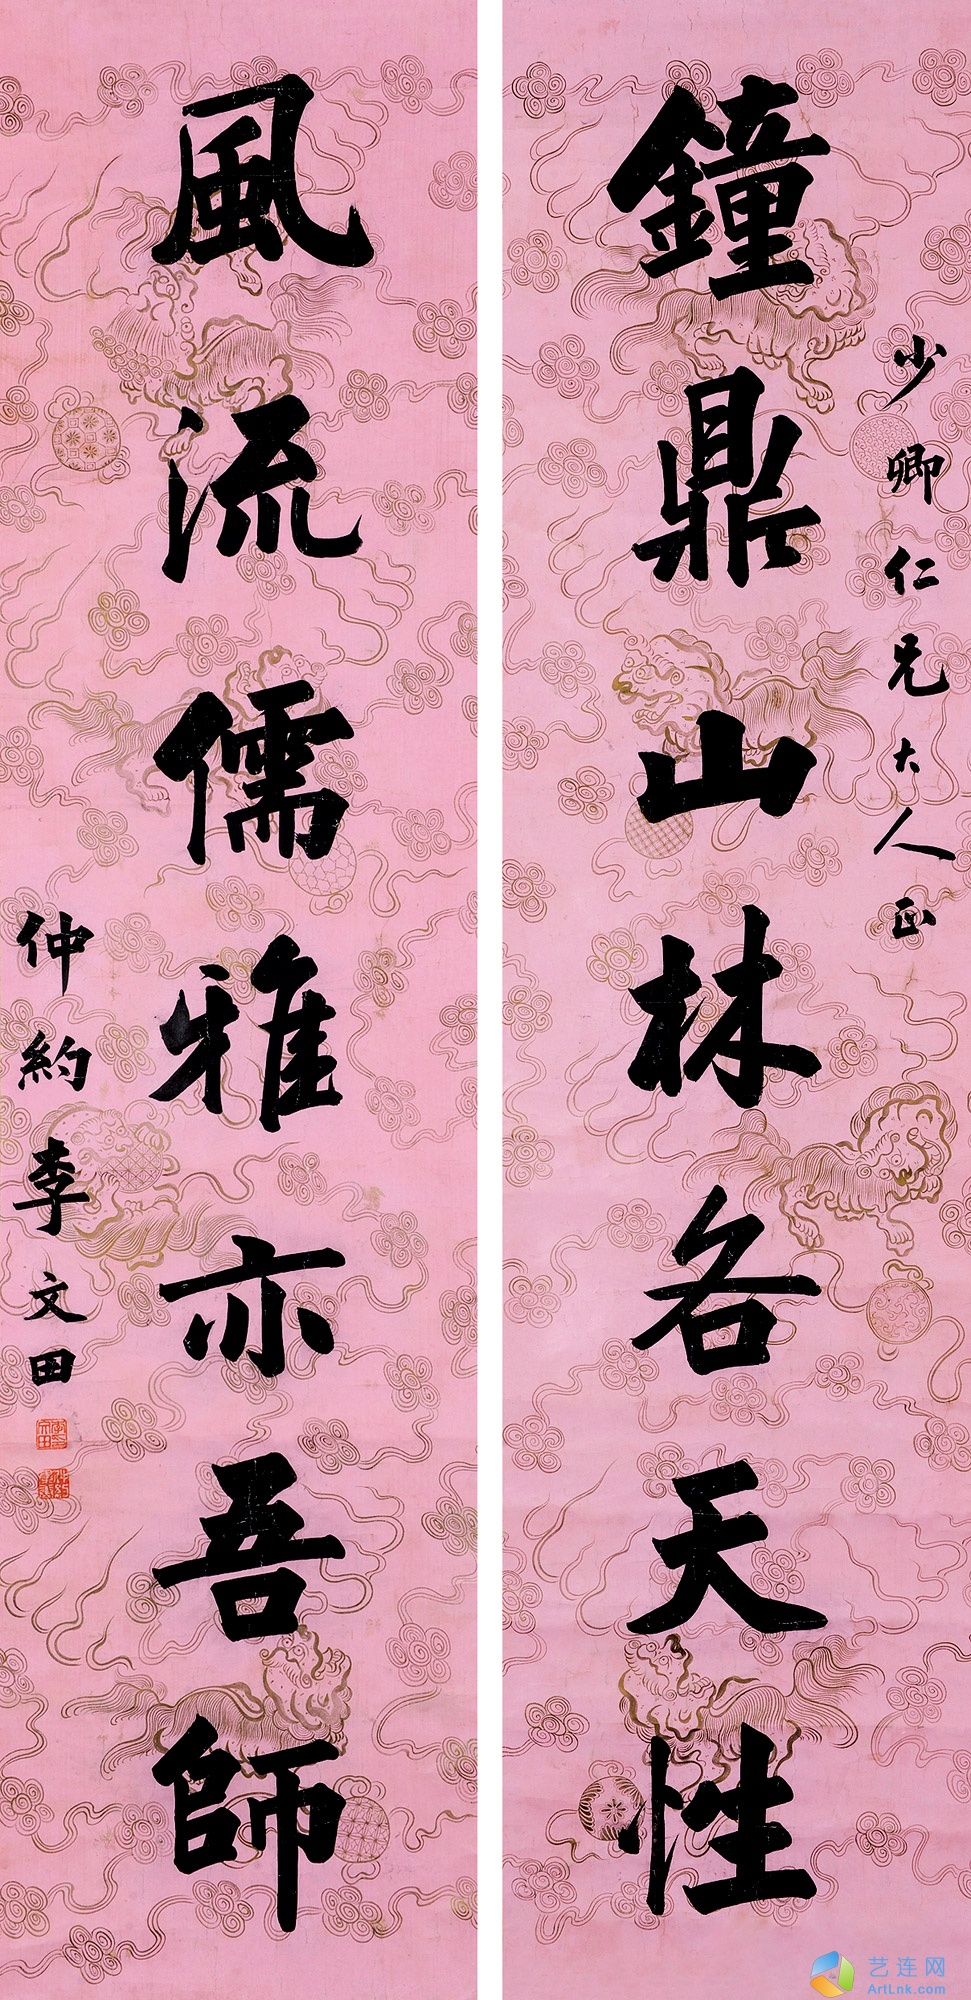 鐘鼎山林各天性
少卿仁兄大人正
風流儒雅亦吾師
仲約李文田
艺连网
ArtLnk.com